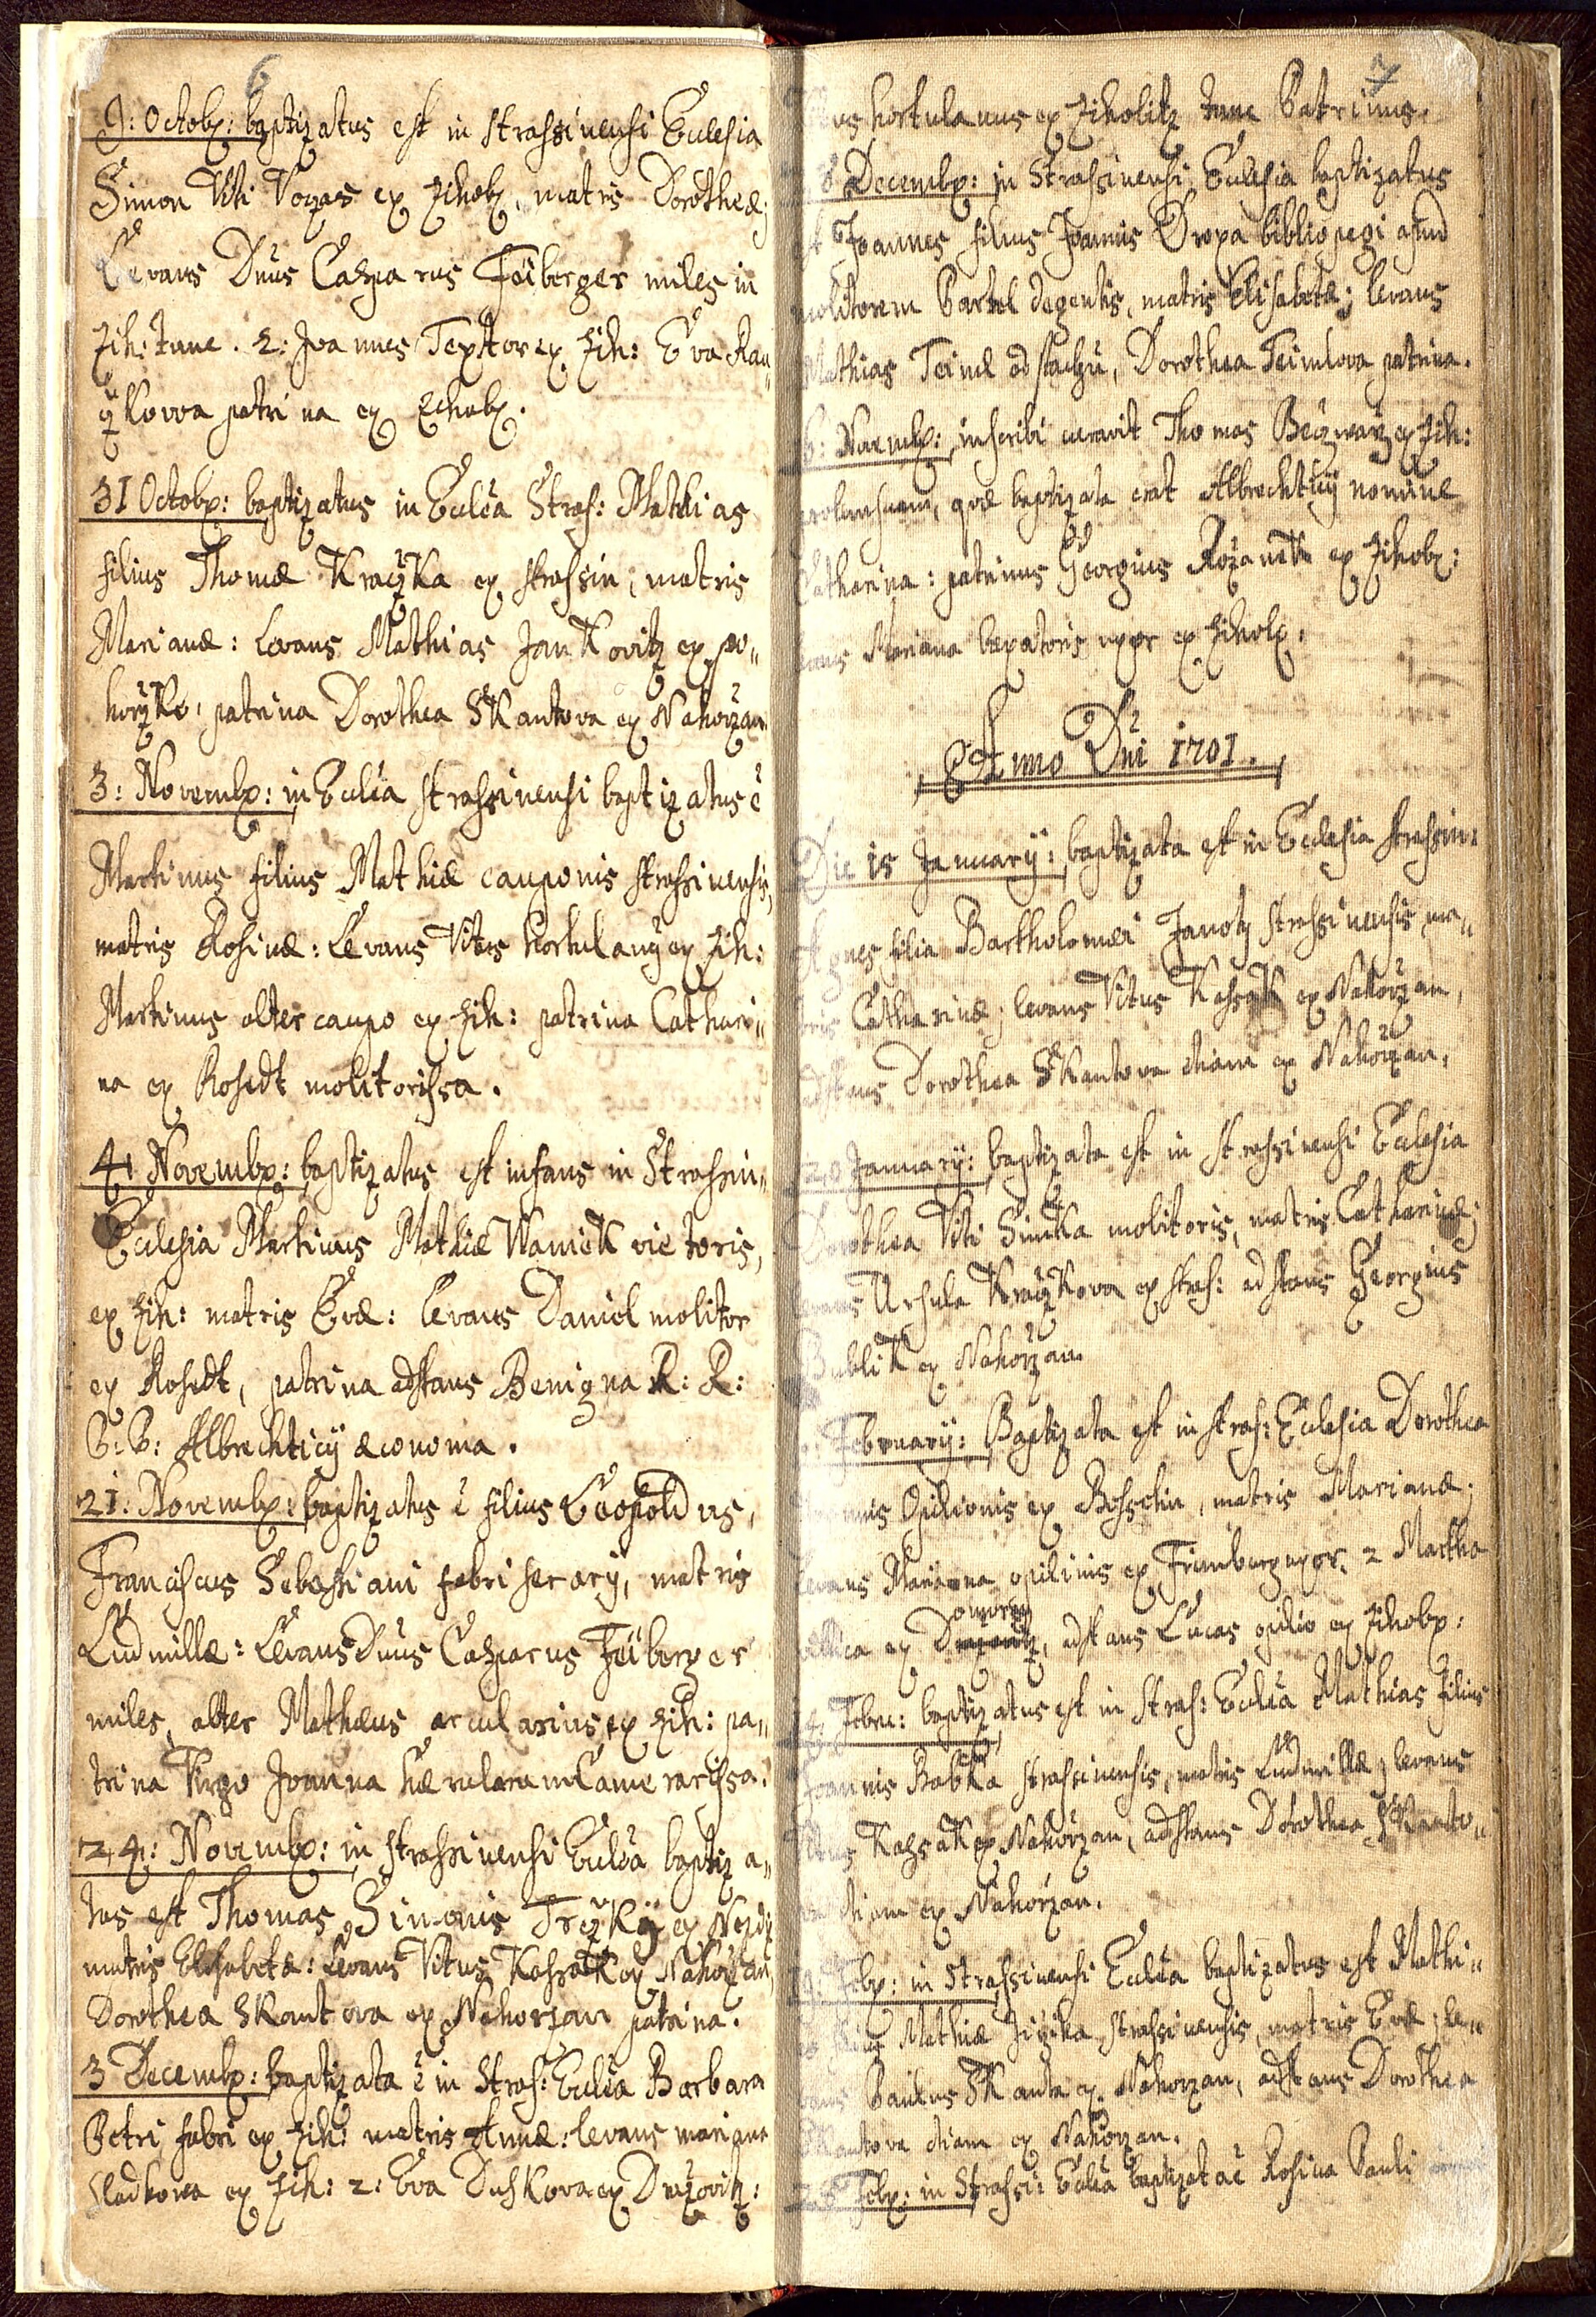 6
9: Octobr: baptizatus est in strassinensi Ecclesia
Simon Viti Vozas ex Zihobz, matris Dorotheæ;
Levans Dnus Casparus Feiberger miles in
Zih: tunc. 2: Joannes Textor ex Zih: Eva Kau„
Kowa patrina ex Zihobz.
31 Octobr: baptizatus in Ecclia Stras: Mathias
filius Thomæ Kraczka ex strassin, matris
Marianæ: Levans Mathias Jankovitz ex po„
horzko, patrina Dorothea Skantova ex Nahorzan.
3: Novembr: in Ecclia strassinensi baptizatus ē
Martinus filius Mathiæ cauponis strassinensis,
matris Rosinæ: Levans Vitus hortulanus ex Zih:
Martinus alter caupo ex Zih: patrina Cathari„
na ex Rosedt molitorissa.
4: Novembr: baptizatus est infans in Strassin„
Ecclesia Martinus Mathiæ Waniek vietoris,
ex Zih: matris Evæ: levans Daniel molitor
ex Rosedt, patrina adstans Benigna R: R:
P: P: Albrechticÿ œconoma.
21: Novembr: baptizatus ē filius Leopoldus,
Franciscus Sebastiani fabri serarÿ, matris
Ludmillæ: Levans Dnus Casparus Feiberger
miles, alter Mathæus arcularius ex Zih: pa„
trina Virgo Joanna herularum Camerarissa.
24: Novembr: in strassinensi Ecclia baptiza„
tus est Thomas, Simonis Trczky ex Nezdi
matris Elisabetæ: Levans Vitus Kassak ex Nahorzan,
Dorothea Skantova ex Nahorzan patrina.
3 Decembr: baptizata ē in Stras: Ecclia Barbara
Petri fabri ex Zih: matris Annæ: levans mariana
Sladkowa ex Zih: 2: Eva Duskova ex Drazovitz:
7
hortulanus ex Ziholitz tunc Patrinus.
8 Decembr: in Strassinensi Ecclesia baptizatus
Joannes filius Joannis Dropa bibliopegi apud
molitorem Bartel degentis, matris Elisabetæ; levans
Mathias Teinl ad stachzu, Dorothea Teimlova patrina.
6: Novembr: inscribi curavit Thomas Beczwarz ex Zih:
prolem suam, quæ baptizata erat Albrechticÿ nomine
Catharina: patrinus Georgius Rozanek ex Zihobz:
levans Mariana uxor ex Zihobz.
Anno Dni 1701.
Die 15 Januarÿ: baptizata est in Ecclesia strassin:
Agnes filia Bartholomæi Janotz strassinensis, ma„
tris Catharinæ; levans Vitus Kassak ex Nahorzan,
adstans Dorothea Skantova etiam ex Nahorzan.
20 Januarÿ: baptizata est in strassinensi Ecclesia
Dorothea Viti Simka molitoris, matris Catharinæ;
levans Ursula Kraczkova ex stras: adstans Georgius
Bublik ex Nahorzan.
Februarÿ: Baptizata est in stras: Ecclesia Dorothea
Joannis Opilionis ex Bossetin, matris Marianæ;
levans Marianna opilionis ex Frimburg uxor. 2 Martha
ex omoritz, adstans Lucas opilio ex Zihobz:
14: Febru: baptizatus est in Stras: Ecclia Mathias filius
Joannis Babka strassinensis, matris Ludmillæ; levans
Vitus Kassak ex Nahorzan, adstans Dorothea Skanto„
va etiam ex Nahorzan.
19: Febr: in strassinensi Ecclia baptizatus est Mathi„
as filius Mathiæ Jizika strassinensis, matris Evæ; le„
vans Paulus Skanta ex Nahorzan, adstans Dorothea
Skantova etiam ex Nahorzan.
28 Febr: in Strassi: Ecclia baptizata ē Rosina Pauli